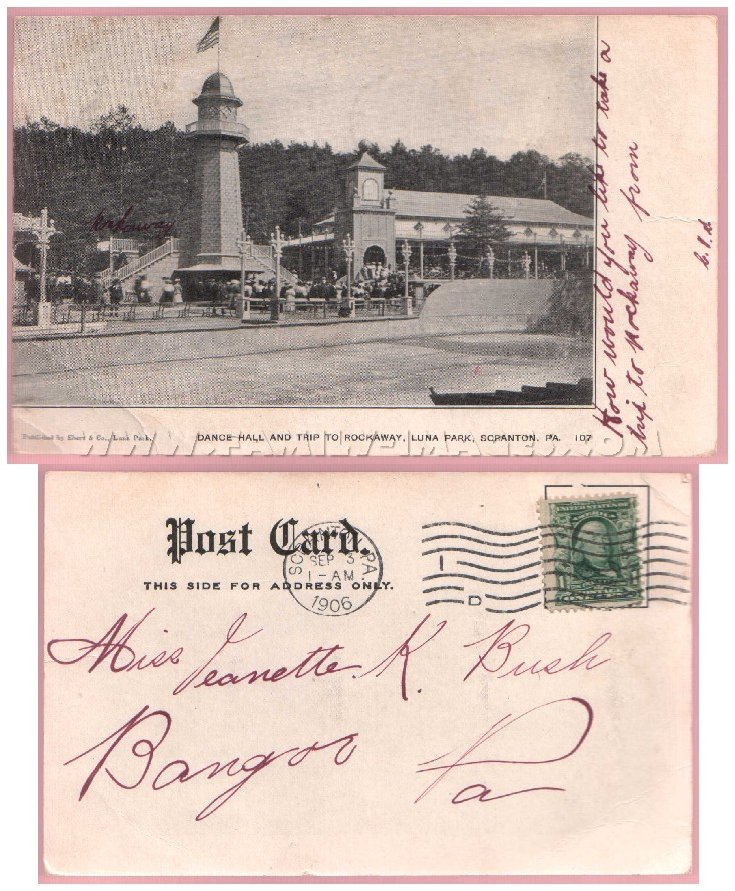 Rockaway
How would you like to take a
trip to Rockaway from
Published by Ebert & Co., Luna Park.
DANCE HALL AND TRIP TO ROCKAWAY, LUNA PARK, SCRANTON, PA. 107
Post Card.
THIS SIDE FOR ADDRESS ONLY.
SCRANTON, PA.
SEP 3
1-AM
1906
1
D
UNITED STATES OF
AMERICA
Miss Jeanette K. Bush
Bangor Pa